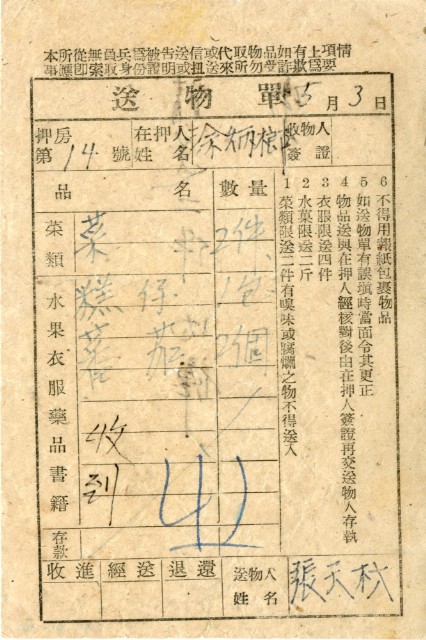 本所從無員兵爲被告送信或代取物品如有上項情
事應卽索取身份證明或扭送來所勿受詐欺爲要
送物單 5月3日
押房第14號 在押人姓名 徐炳 收物人簽證
品名 數量
菜類 菜 2件
糕 1包
番茄 2個
水果衣服藥品書籍
收到
存款
1 菜類限送二件有嗅味或腐爛之物不得送入
2 水菓限送二斤
3 衣服限送四件
4 物品送與在押人經核對後由在押人簽證再交送物人存執
5 如送物單有誤塡時當面令其更正
6 不得用報紙包裹物品
收進 經送 退還 送物人姓名 張天